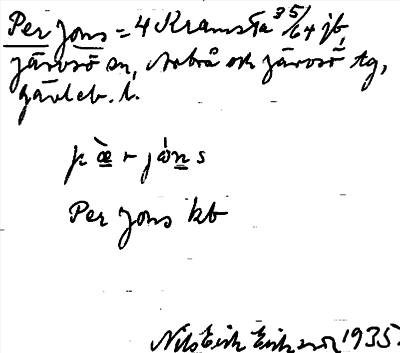 Per Jons = 4 Kramsta 35/64 jb,
Järvsö sn, Arbrå och Järvsö tg,
Gävleb. l.
pæ̀r jòns
Per Jons kb
Nils Erik Eriksson 1935.